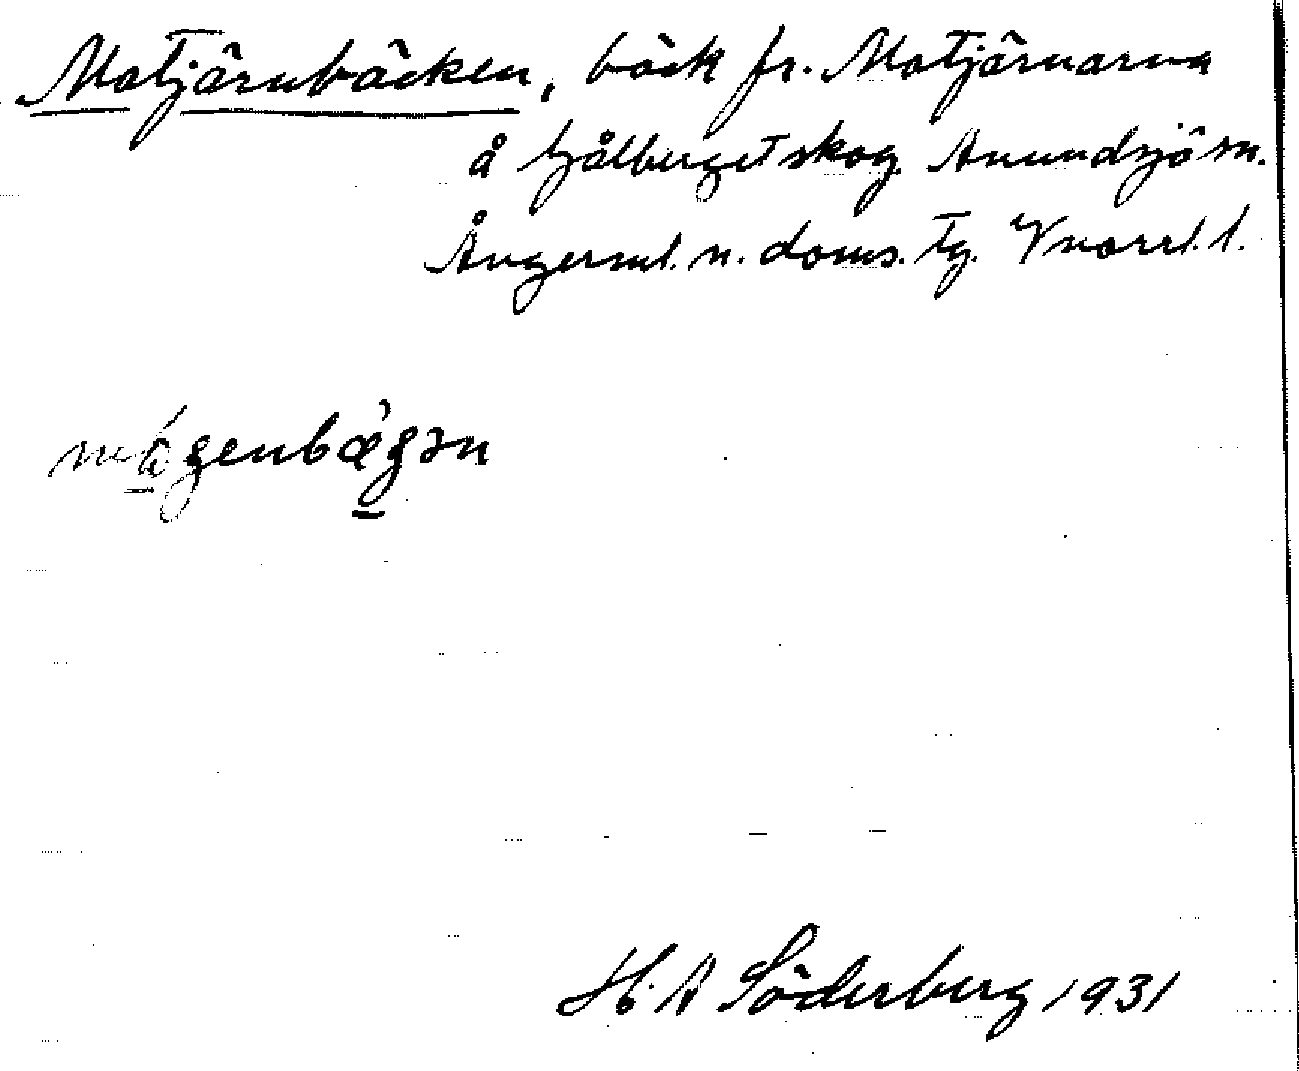 Motjärnbäcken, bäck fr. Motjärnarna
å Hjålberget skog Anundsjö sn.
Ångerml. n. doms. tg. Vnorrl. l.
mågenbægən
H. A Söderberg 1931